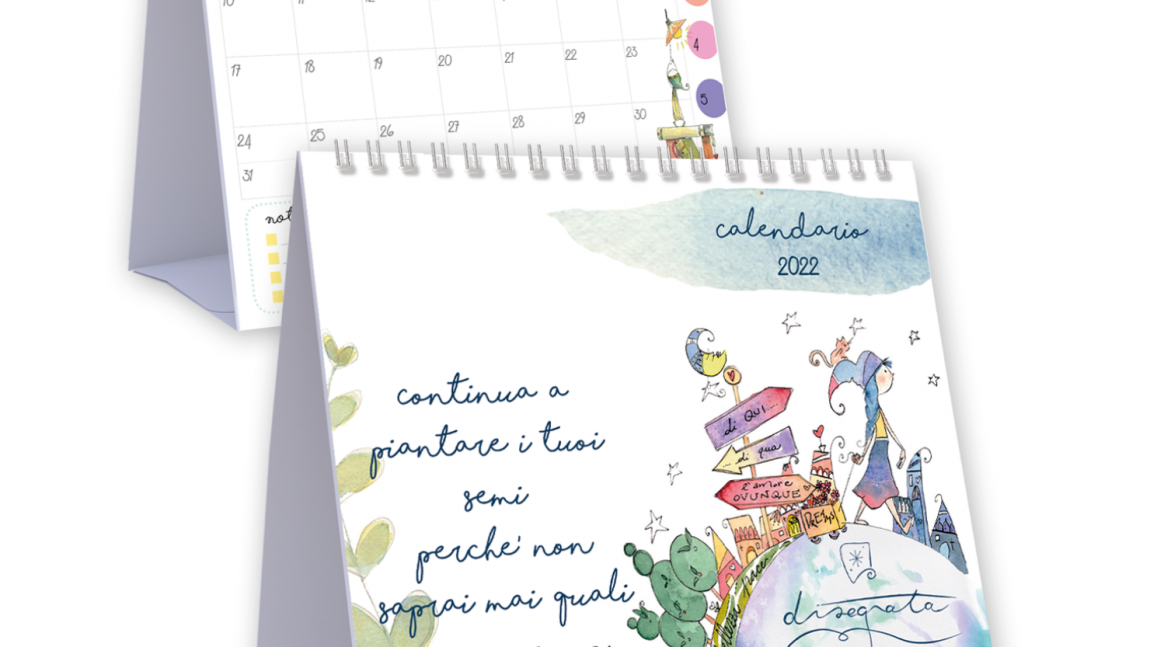 17 18 19 20 21 22 23
24 25 26 27 28 29 30
31
4
5
calendario
2022
continua a
piantare i tuoi
semi
perche' non
saprai mai quali
di QUI....
... di qua
l'amore
OVUNQUE
disegnata